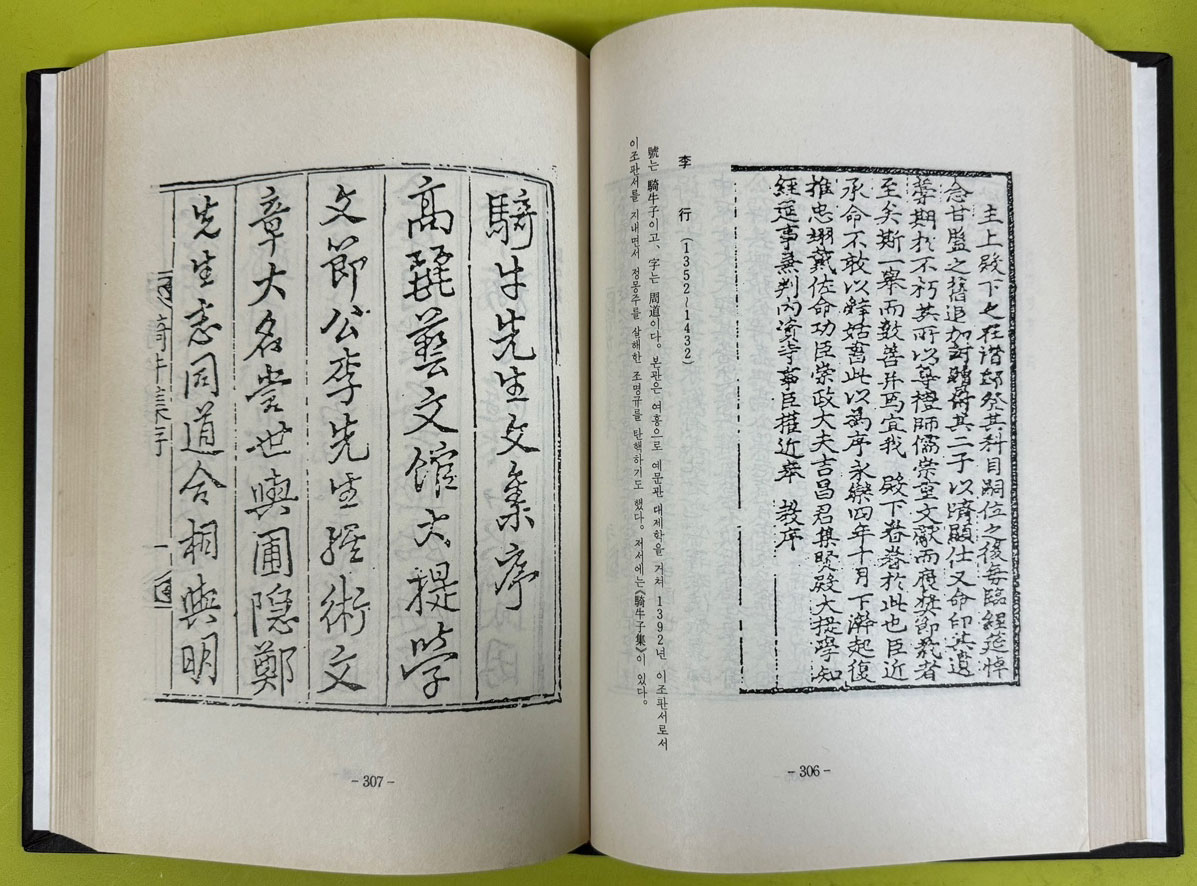 主上殿下之在潛邸登其科目嗣位之後每臨經筵悼
念甘盤之舊追加封贈將其二子以濟顯仕又命印其遺
藁期於不朽其所以尊禮師儒崇重文獻而庶奬節義者
至矣斯一擧而數善幷焉宜我 殿下眷眷於此也臣近
承命不敢以辭姑書此以爲序永樂四年十月下澣起復
推忠翊戴佐命功臣崇政大夫吉昌君集賢殿大提學知
經筵事兼判內資寺事臣權近奉 敎序
李 行 (1352~1432)
號는 騎牛子이고, 字는 周道이다. 본관은 여흥으로 예문관 대제학을 거쳐 1392년 이조판서로서
이조판서를 지내면서 정몽주를 살해한 조영규를 탄핵하기도 했다. 저서에는《騎牛子集》이 있다.
- 306 -
騎牛先生文集序
高麗藝文館大提學
文節公李先生經術文
章大名當世與圃隱鄭
先生志同道合相與明
騎牛集序
一
- 307 -